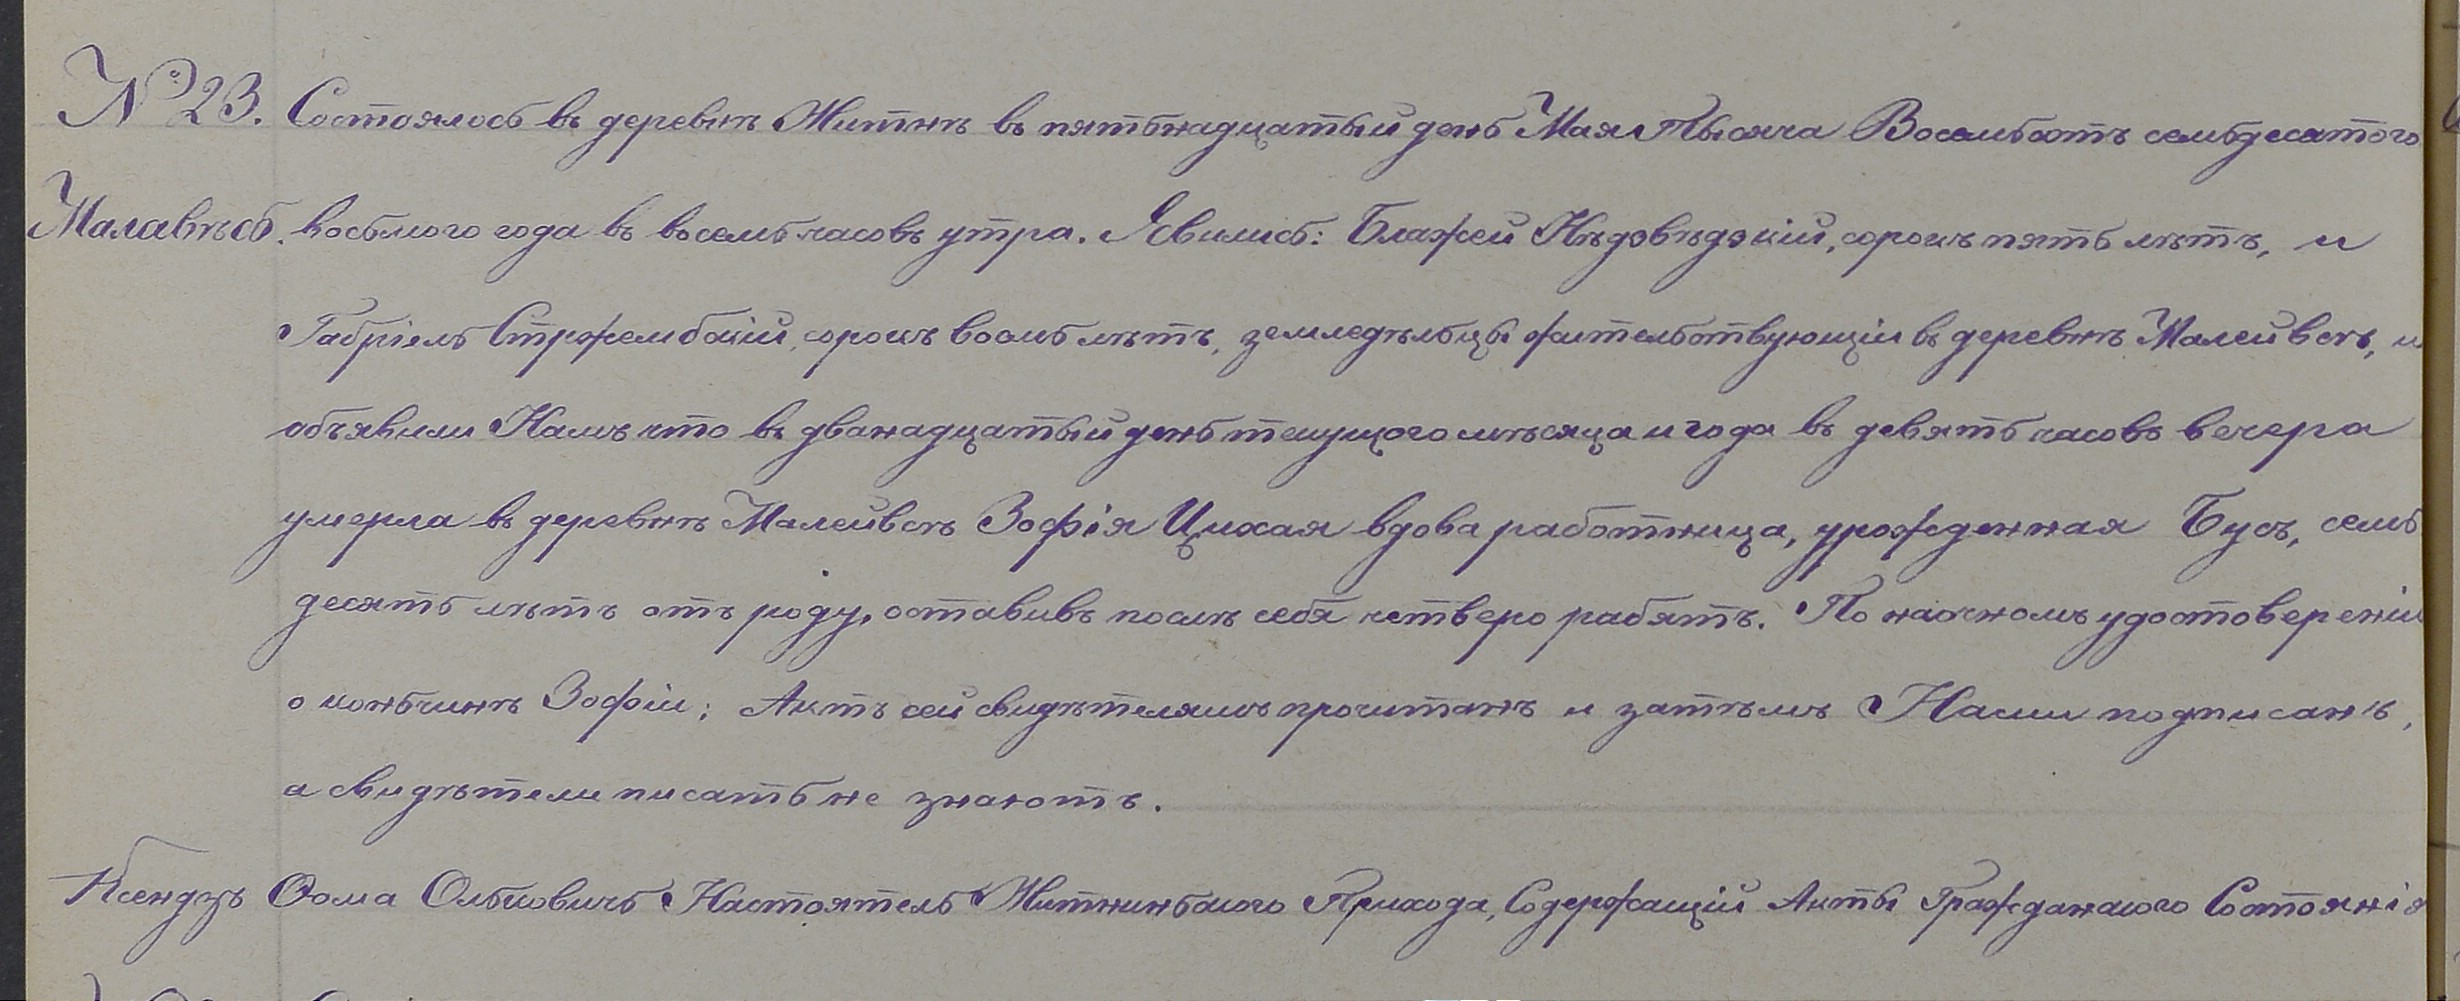 № 23. Состоялось въ деревнѣ Житнѣ въ пятьнадцатый день Мая Тысяча Восемьсотъ семьдесятого
Малавѣсь. восьмого года въ восемь часовъ утра. Явились: Блажей Нѣдзвѣдзкій, сорокъ пять лѣтъ, и
Габріель Стржембскій, сорокъ восмь лѣтъ, земледѣльцы жительствующіи въ деревнѣ Малейвсѣ, и
объявили Намъ что въ дванадцатый день текущого мѣсяца и года въ девять часовъ вечера
умерла въ деревнѣ Малейвсѣ Зофія Цихая вдова работница, урожденная Бусъ, семь
десять лѣтъ отъ роду, оставивъ послѣ себя четверо рабятъ. По наочномъ удостовереніи
о коньчинѣ Зофіи; Актъ сей свидѣтелямъ прочитанъ и затѣмъ Нами подписанъ,
а свидѣтели писать не знаютъ.
Ксендзъ Ѳома Ольковичь Настоятель Житниньского Прихода, Содержащій Акты Гражданского Состоянія